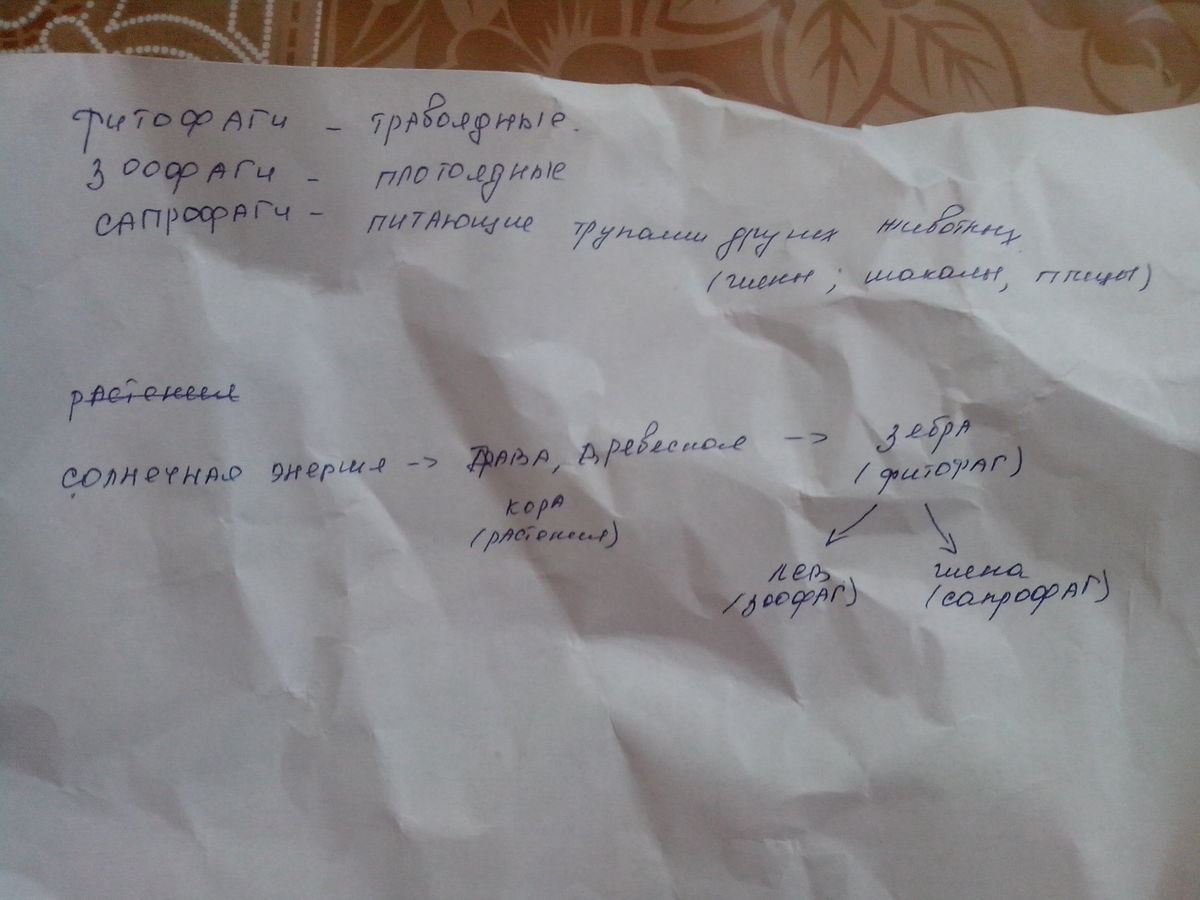 фитофаги – травоядные.
зоофаги – плотоядные
сапрофаги – питающие трупами других животных
(гиены; шакалы, птицы)
растения
солнечная энергия -> трава, древесная -> зебра
кора (фитофаг)
(растения)
лев гиена
(зоофаг) (сапрофаг)